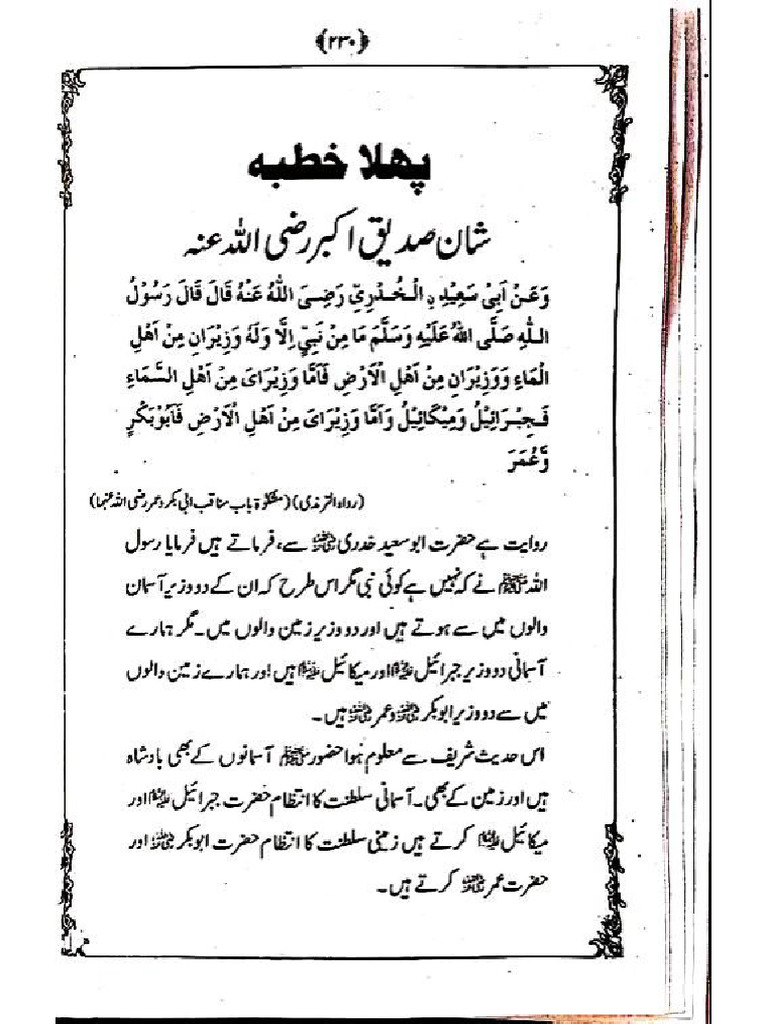 ﴿۲۳۰﴾
پہلا خطبہ
شان صدیق اکبر رضی اللہ عنہ
وَعَنْ اَبِیْ سَعِیْدِ نِ الْخُدْرِیِّ رَضِیَ اللّٰہُ عَنْہُ قَالَ قَالَ رَسُوْلُ
اللّٰہِ صَلَّی اللّٰہُ عَلَیْہِ وَسَلَّمَ مَا مِنْ نَبِیٍّ اِلَّا وَلَہٗ وَزِیْرَانِ مِنْ اَھْلِ
الْمَاءِ وَوَزِیْرَانِ مِنْ اَھْلِ الْاَرْضِ فَاَمَّا وَزِیْرَایَ مِنْ اَھْلِ السَّمَاءِ
فَجِبْرَائِیْلُ وَمِیْکَائِیْلُ وَاَمَّا وَزِیْرَایَ مِنْ اَھْلِ الْاَرْضِ فَاَبُوْبَکْرٍ
وَّعُمَرَ
(رواہ الترمذی) (مشکوٰۃ باب مناقب ابی بکر و عمر رضی اللہ عنہما)
روایت ہے حضرت ابو سعید خدری رضی اللہ عنہ سے، فرماتے ہیں فرمایا رسول
اللہ ﷺ نے کہ نہیں ہے کوئی نبی مگر اس طرح کہ ان کے دو وزیر آسمان
والوں میں سے ہوتے ہیں اور دو وزیر زمین والوں میں۔ مگر ہمارے
آسمانی دو وزیر جبرائیل علیہ السلام اور میکائیل علیہ السلام ہیں اور ہمارے زمین والوں
میں سے دو وزیر ابوبکر رضی اللہ عنہ و عمر رضی اللہ عنہ ہیں۔
اس حدیث شریف سے معلوم ہوا حضور ﷺ آسمانوں کے بھی بادشاہ
ہیں اور زمین کے بھی۔ آسمانی سلطنت کا انتظام حضرت جبرائیل علیہ السلام اور
میکائیل علیہ السلام کرتے ہیں زمینی سلطنت کا انتظام حضرت ابوبکر رضی اللہ عنہ اور
حضرت عمر رضی اللہ عنہ کرتے ہیں۔